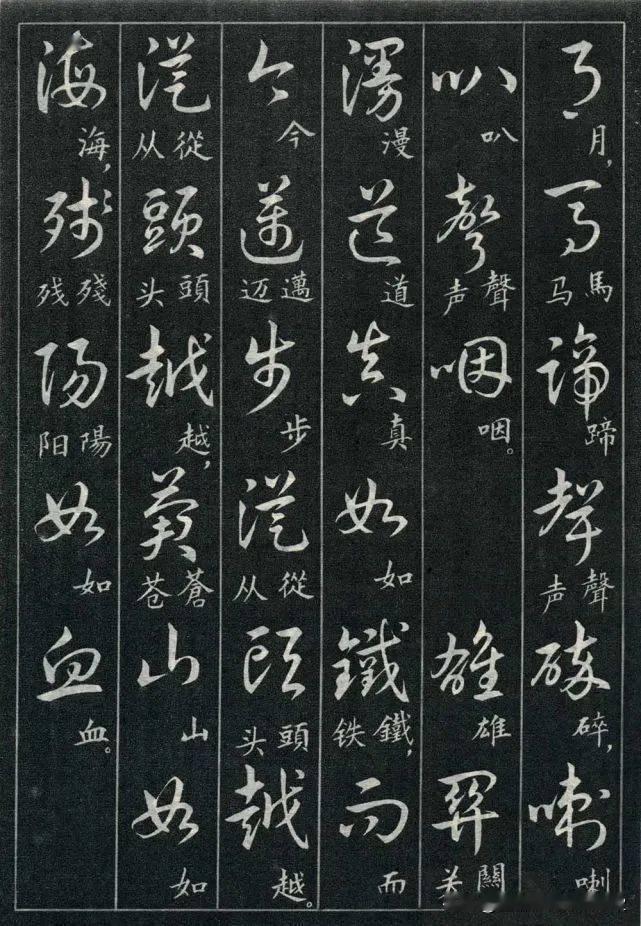 月馬蹄聲碎喇
月，馬马蹄聲声碎，喇
叭聲咽雄關
叭聲声咽。雄關关
漫道真如鐵而
漫道真如鐵，铁而
今邁步從頭越
今邁迈步從从頭头越。
從頭越蒼山如
從从頭头越，蒼苍山如
海殘陽如血
海，殘残陽阳如血。